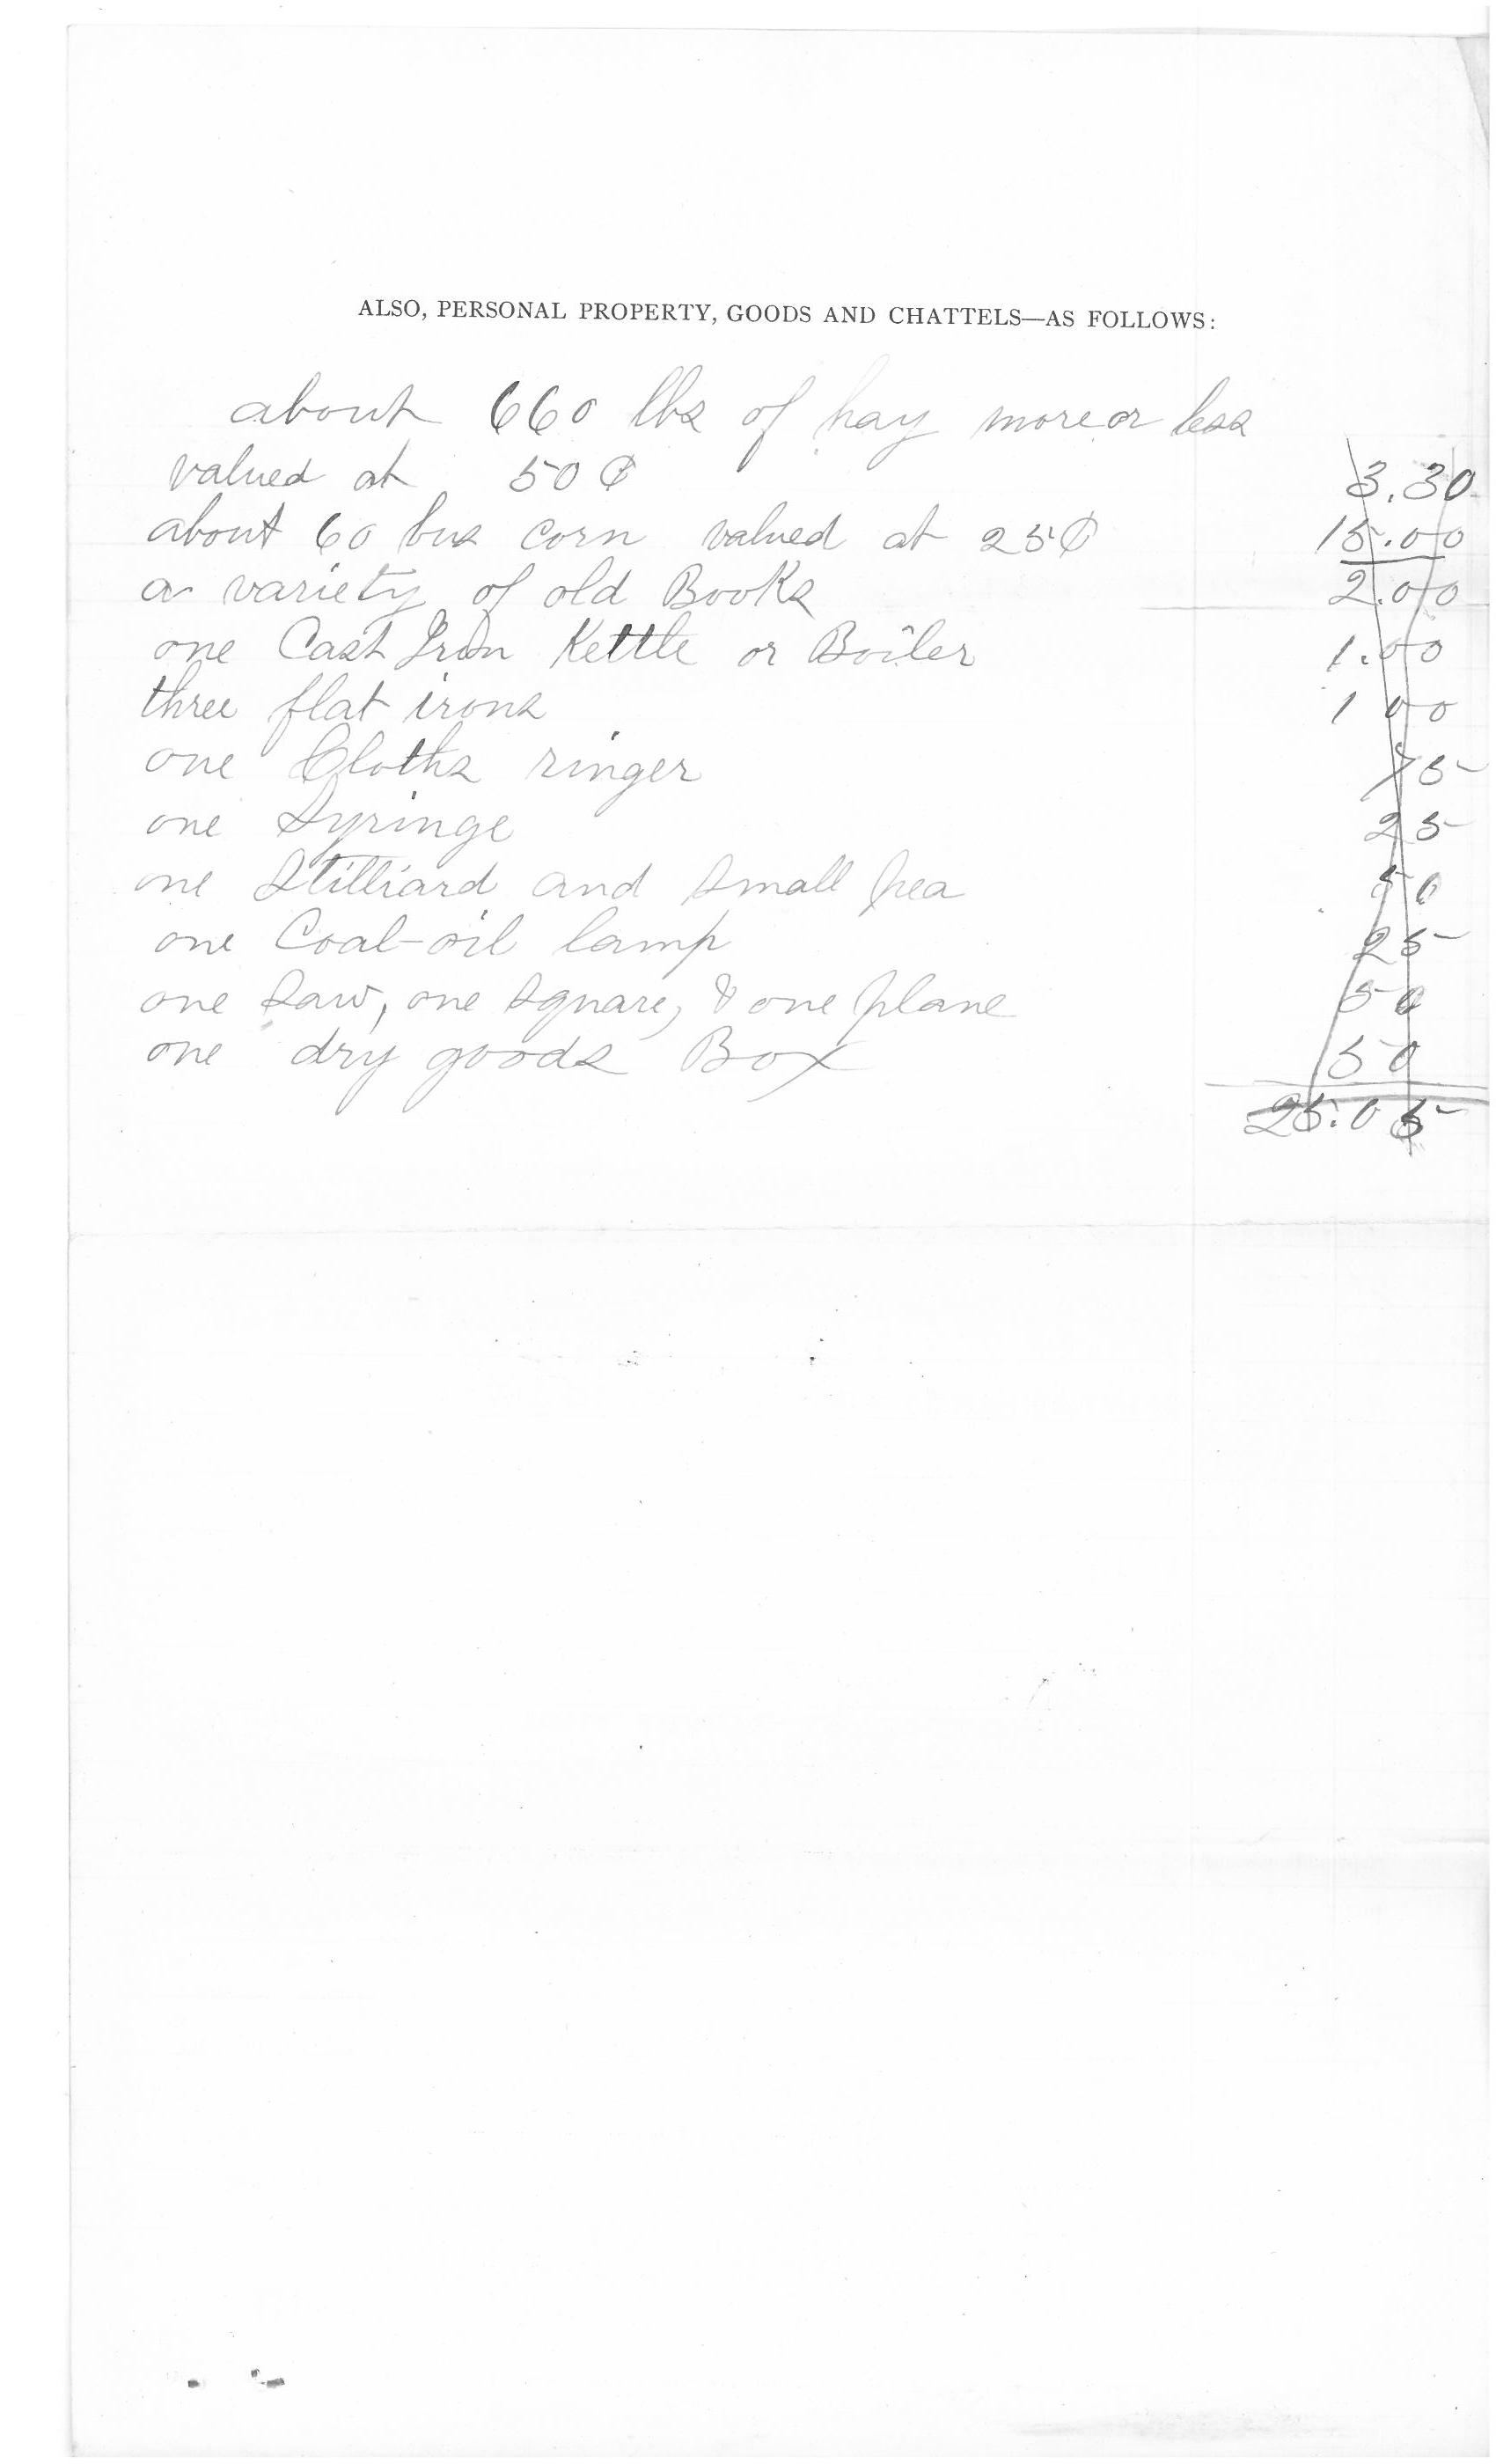 ALSO, PERSONAL PROPERTY, GOODS AND CHATTELS—AS FOLLOWS:
about 660 lbs of hay more or less
valued at 50 ¢ 3.30
about 60 bus corn valued at 25¢ 15.00
a variety of old Books 2.00
one Cast Iron Kettle or Boiler 1.00
three flat irons 1 00
one Cloths ringer 75
one Syringe 25
one Stilliard and small pea 50
one Coal-oil lamp 25
one saw, one square, & one plane 50
one dry goods Box 50
25.05